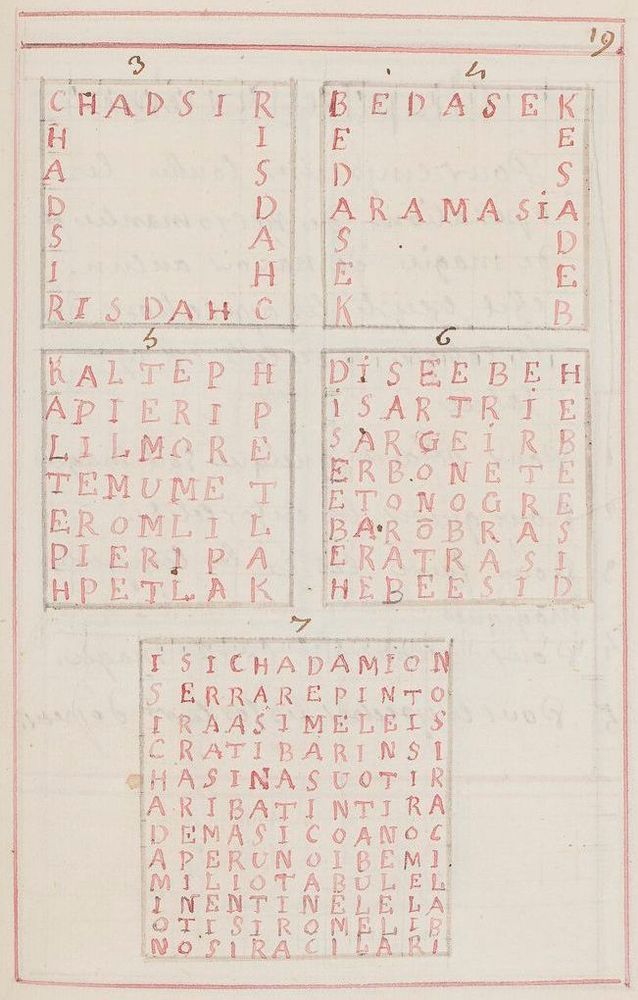 19
3
CHADSIR
H I
A S
D D
S A
I H
RISDAHC
4
BEDASEK
E E
D S
ARAMASIA
S D
E E
K B
5
KALTEPH
APIERIP
LILMORE
TEMUMET
EROMLIL
PIERIPA
HPETLAK
6
DISEEBEH
ISARTRIE
SARGEIRB
ERBONETE
ETONOGRE
BARŌBRAS
ERATRASI
HEBEESID
7
ISICHADAMION
SERRAREPINTO
IRAASIMELEIS
CRATIBARINSI
HASINASUOTIR
ARIBATINTIRA
DEMASICOANOC
APERUNOIBEMI
MILIOTABULEL
INENTINELELA
OTISIROMELIB
NOSIRACILARI